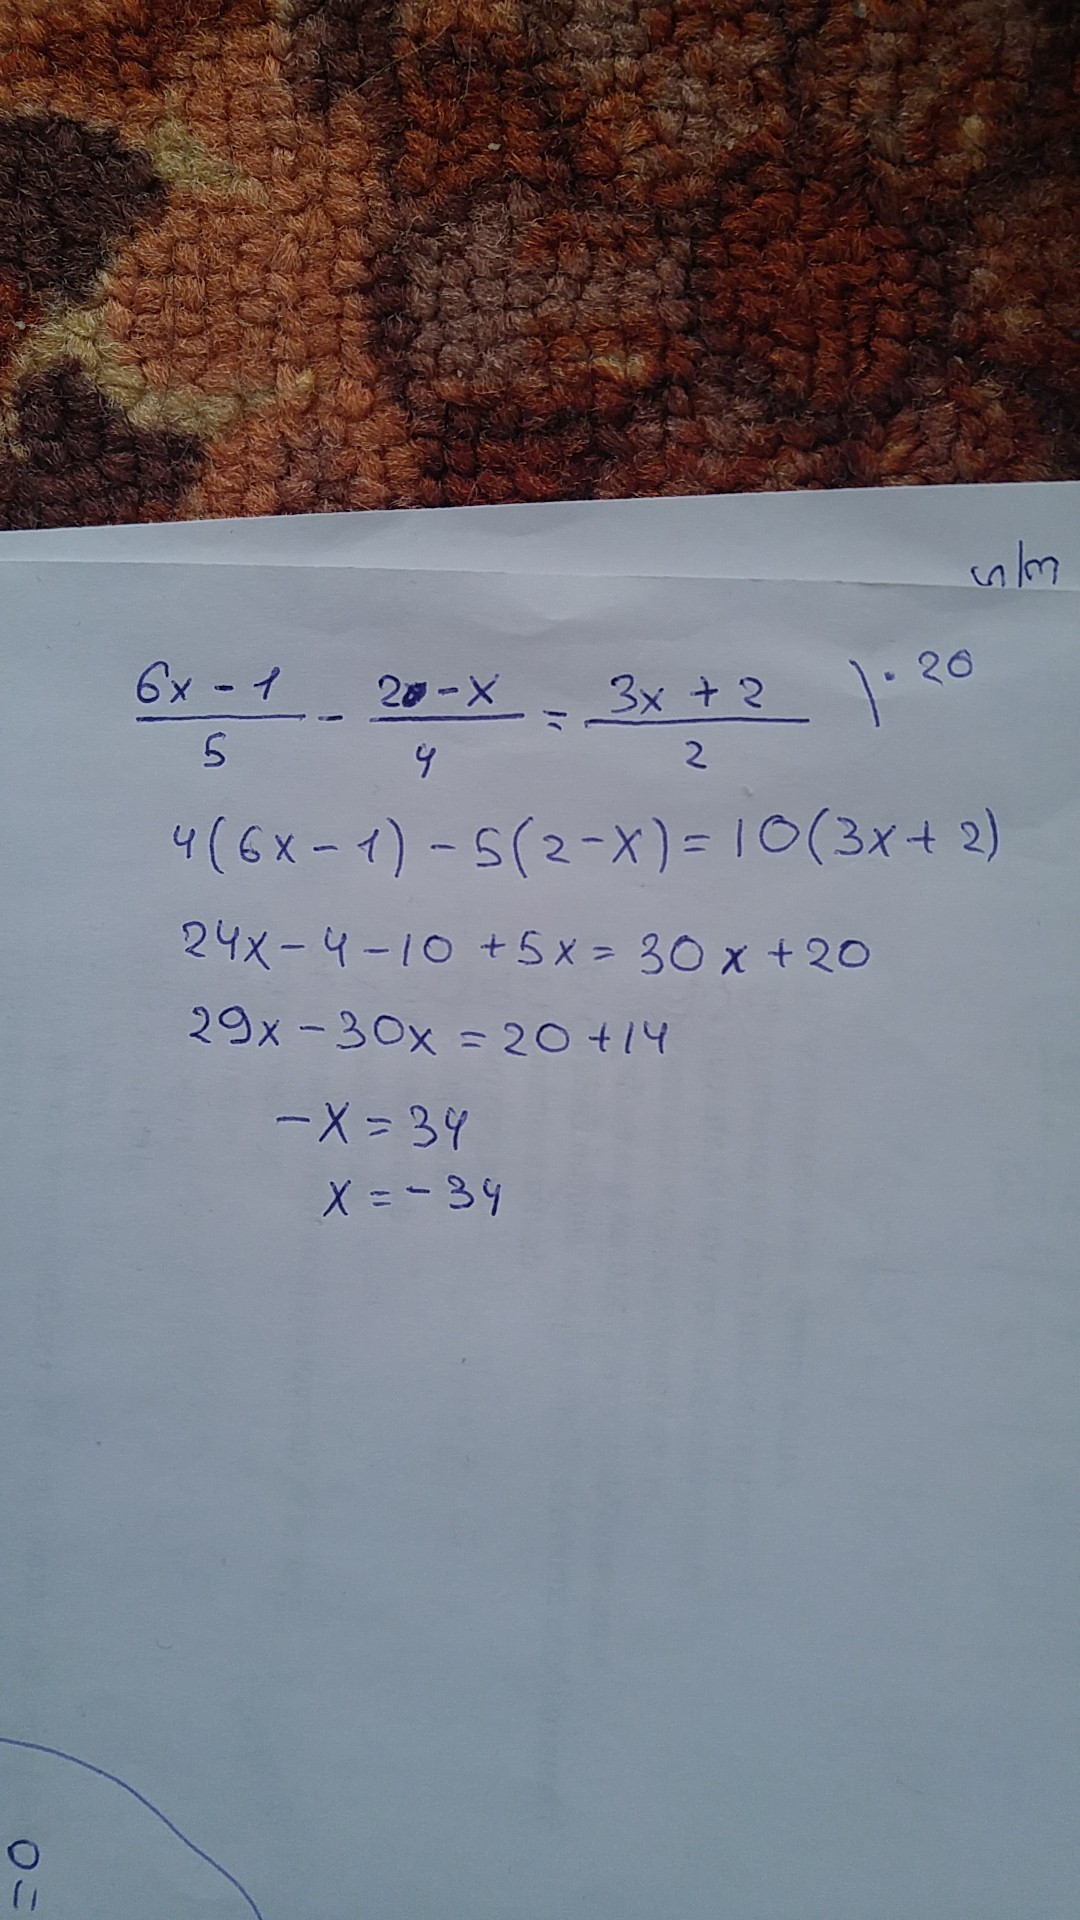 6x - 1 / 5 - 2 - x / 4 = 3x + 2 / 2 ) · 20
4(6x - 1) - 5(2 - x) = 10(3x + 2)
24x - 4 - 10 + 5x = 30x + 20
29x - 30x = 20 + 14
-x = 34
x = -34
=0